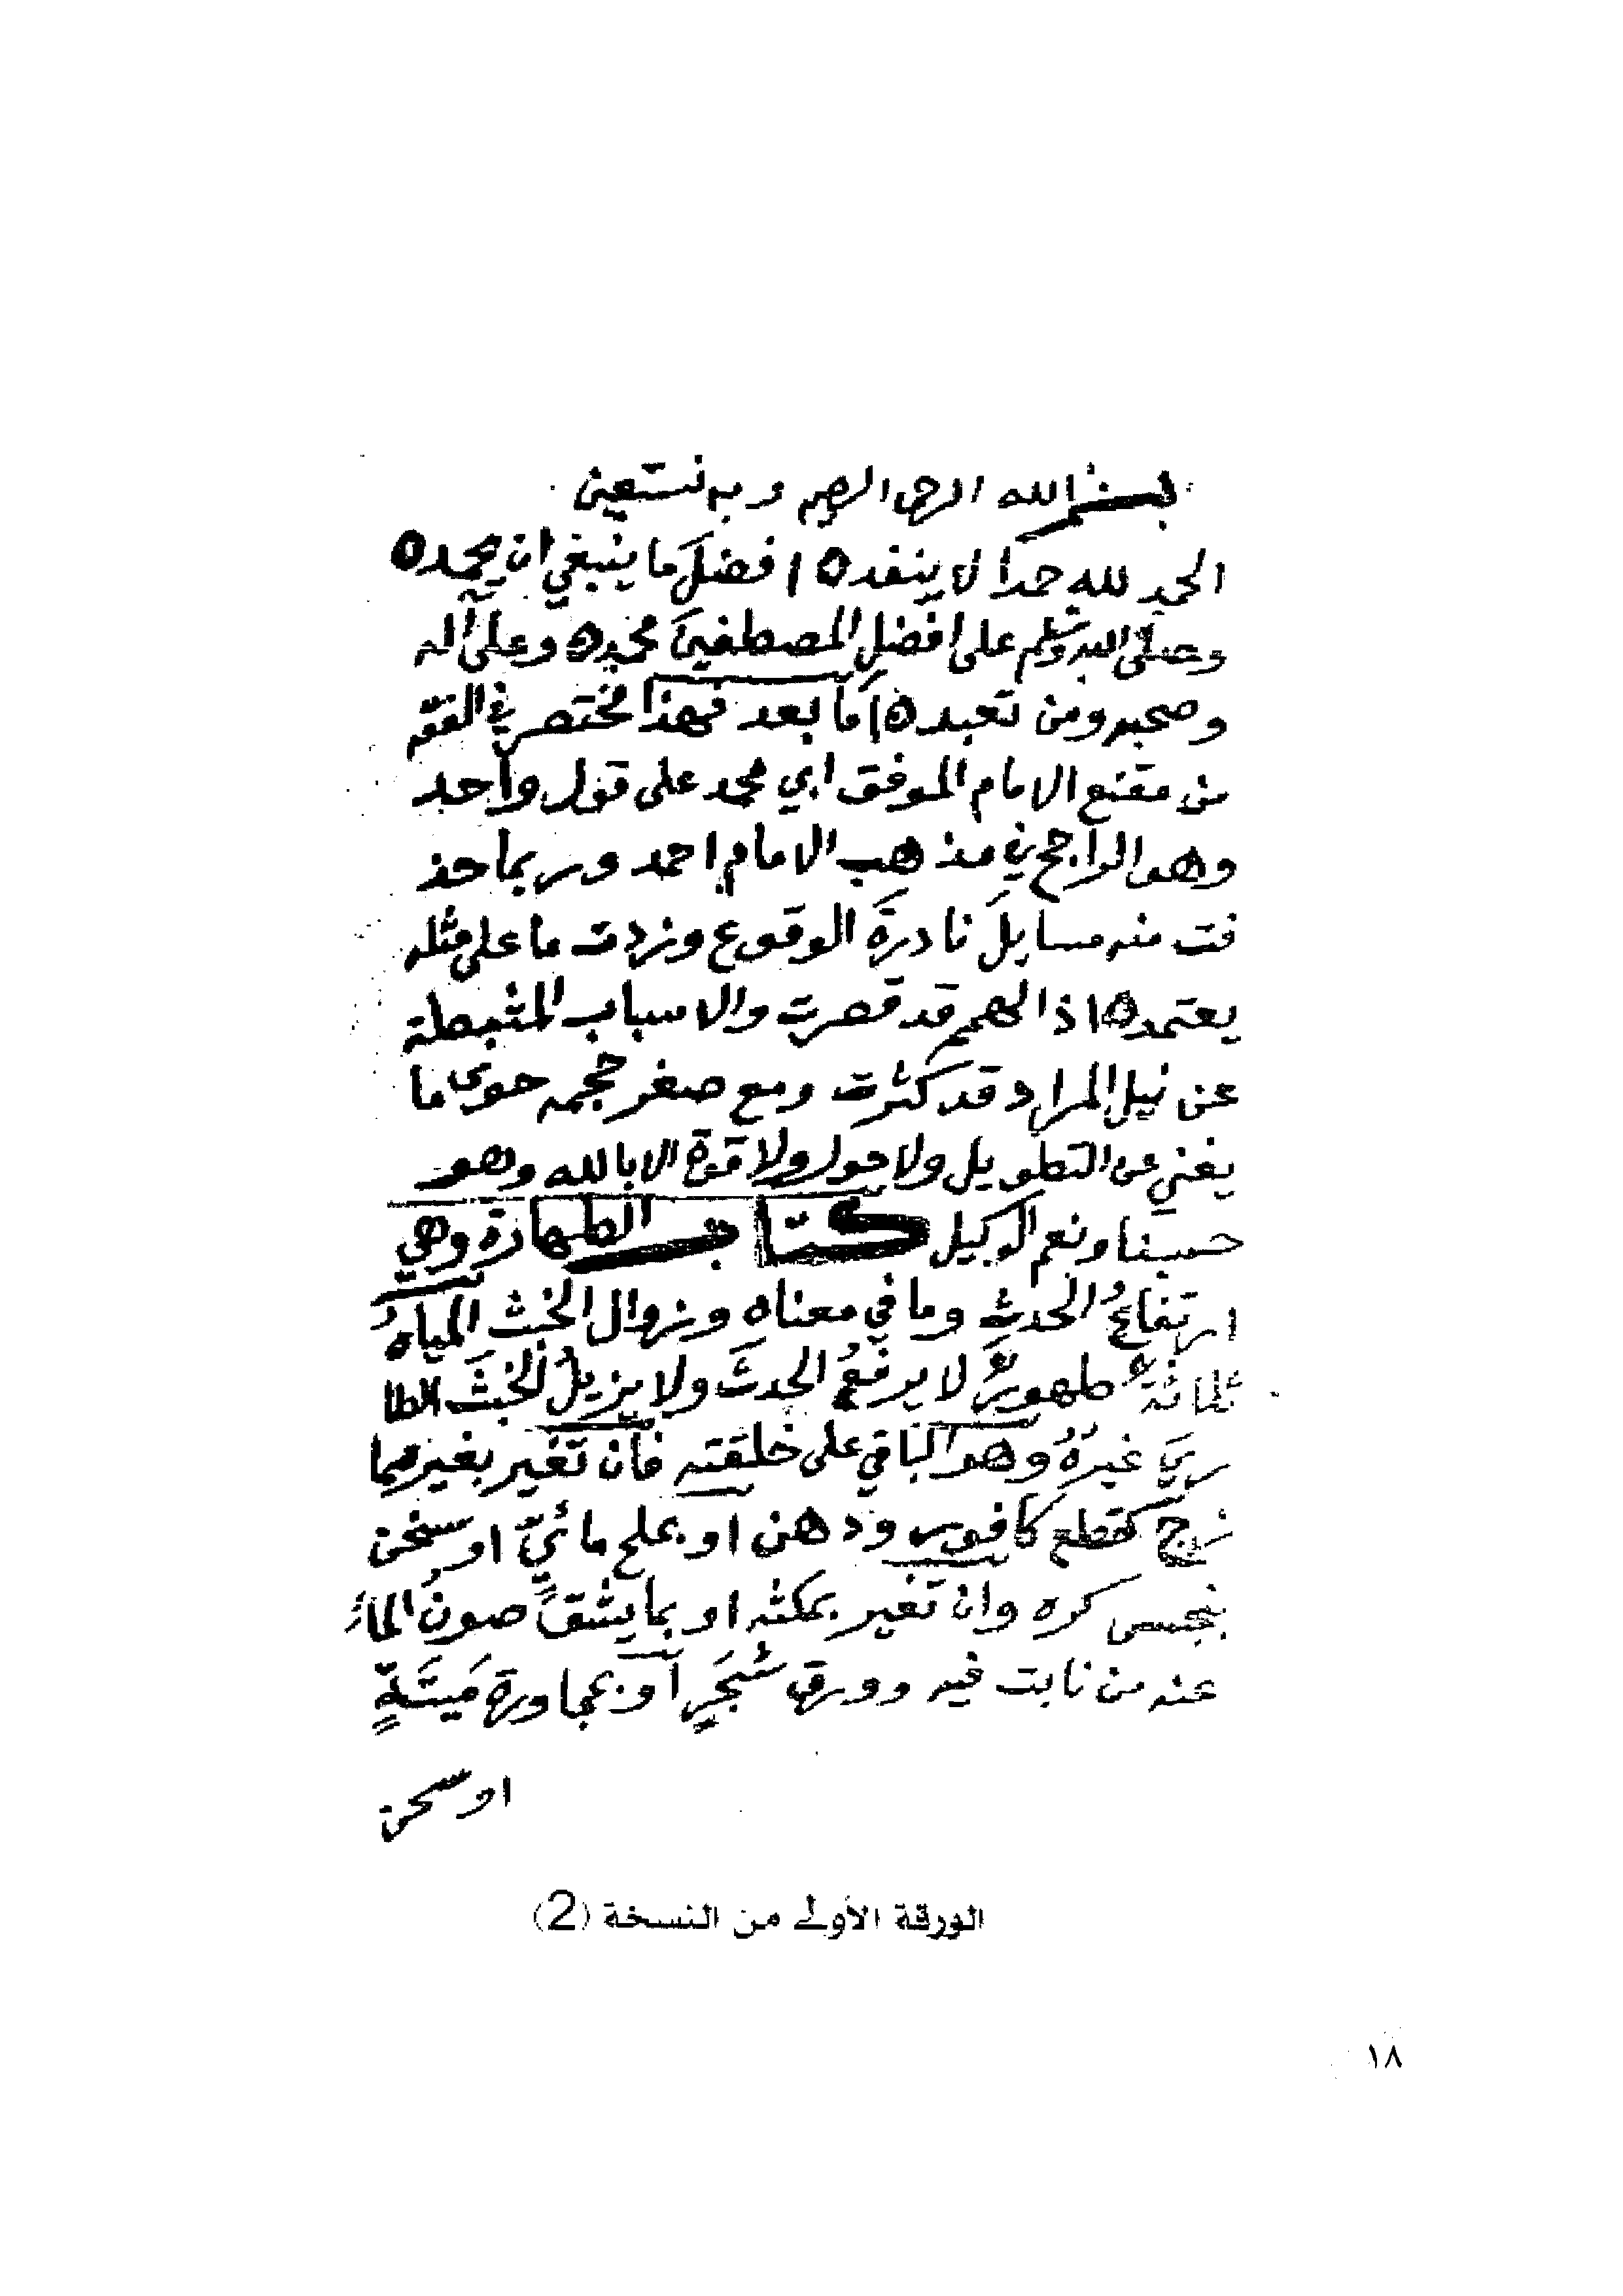 بسم الله الرحمن الرحيم وبه نستعين
الحمد لله حمدا لا ينفد ٥ افضلَ ما ينبغي ان يحمد ٥
وصلى الله وسلم على افضلِ المصطفينَ محمد ٥ وعلى اله
وصحبه ومن تعبد ٥ أمّا بعد فهذا مختصر في الفقه
من مقنع الامام الموفق ابي محمد على قول واحد
وهو الراجح في مذهب الامام احمد وربما حذ
فت منه مسايلَ نادرةَ الوقوع وزدت ما على مثله
يعتمد ٥ اذ الهمم قد قصرت والاسباب المثبطة
عن نيل المراد قد كثرت ومع صغر حجمه حوى ما
يغني عن التطويل ولا حول ولا قوة الا بالله وهو
حسبنا ونعم الوكيل كتاب الطهارة وهي
ارتفاعُ الحدثِ وما في معناه وزوال الخبث المياهُ
ثلاثةٌ طهورٌ لا يرفعُ الحدثَ ولا يزيلُ الخبثَ الطا
ريَ غيرُهُ وهو الباقي على خلقته فان تغير بغير مما
زج كقطع كافور ودهن او بملح مائيّ او سخن
بنجس كره وان تغير بمكثه او بما يشقُّ صونُ الماءِ
عنه من نابت فيه وورق شَجَرٍ أو بمجاورة مَيتَةٍ
او سخن
الورقة الأولى من النسخة (2)
١٨